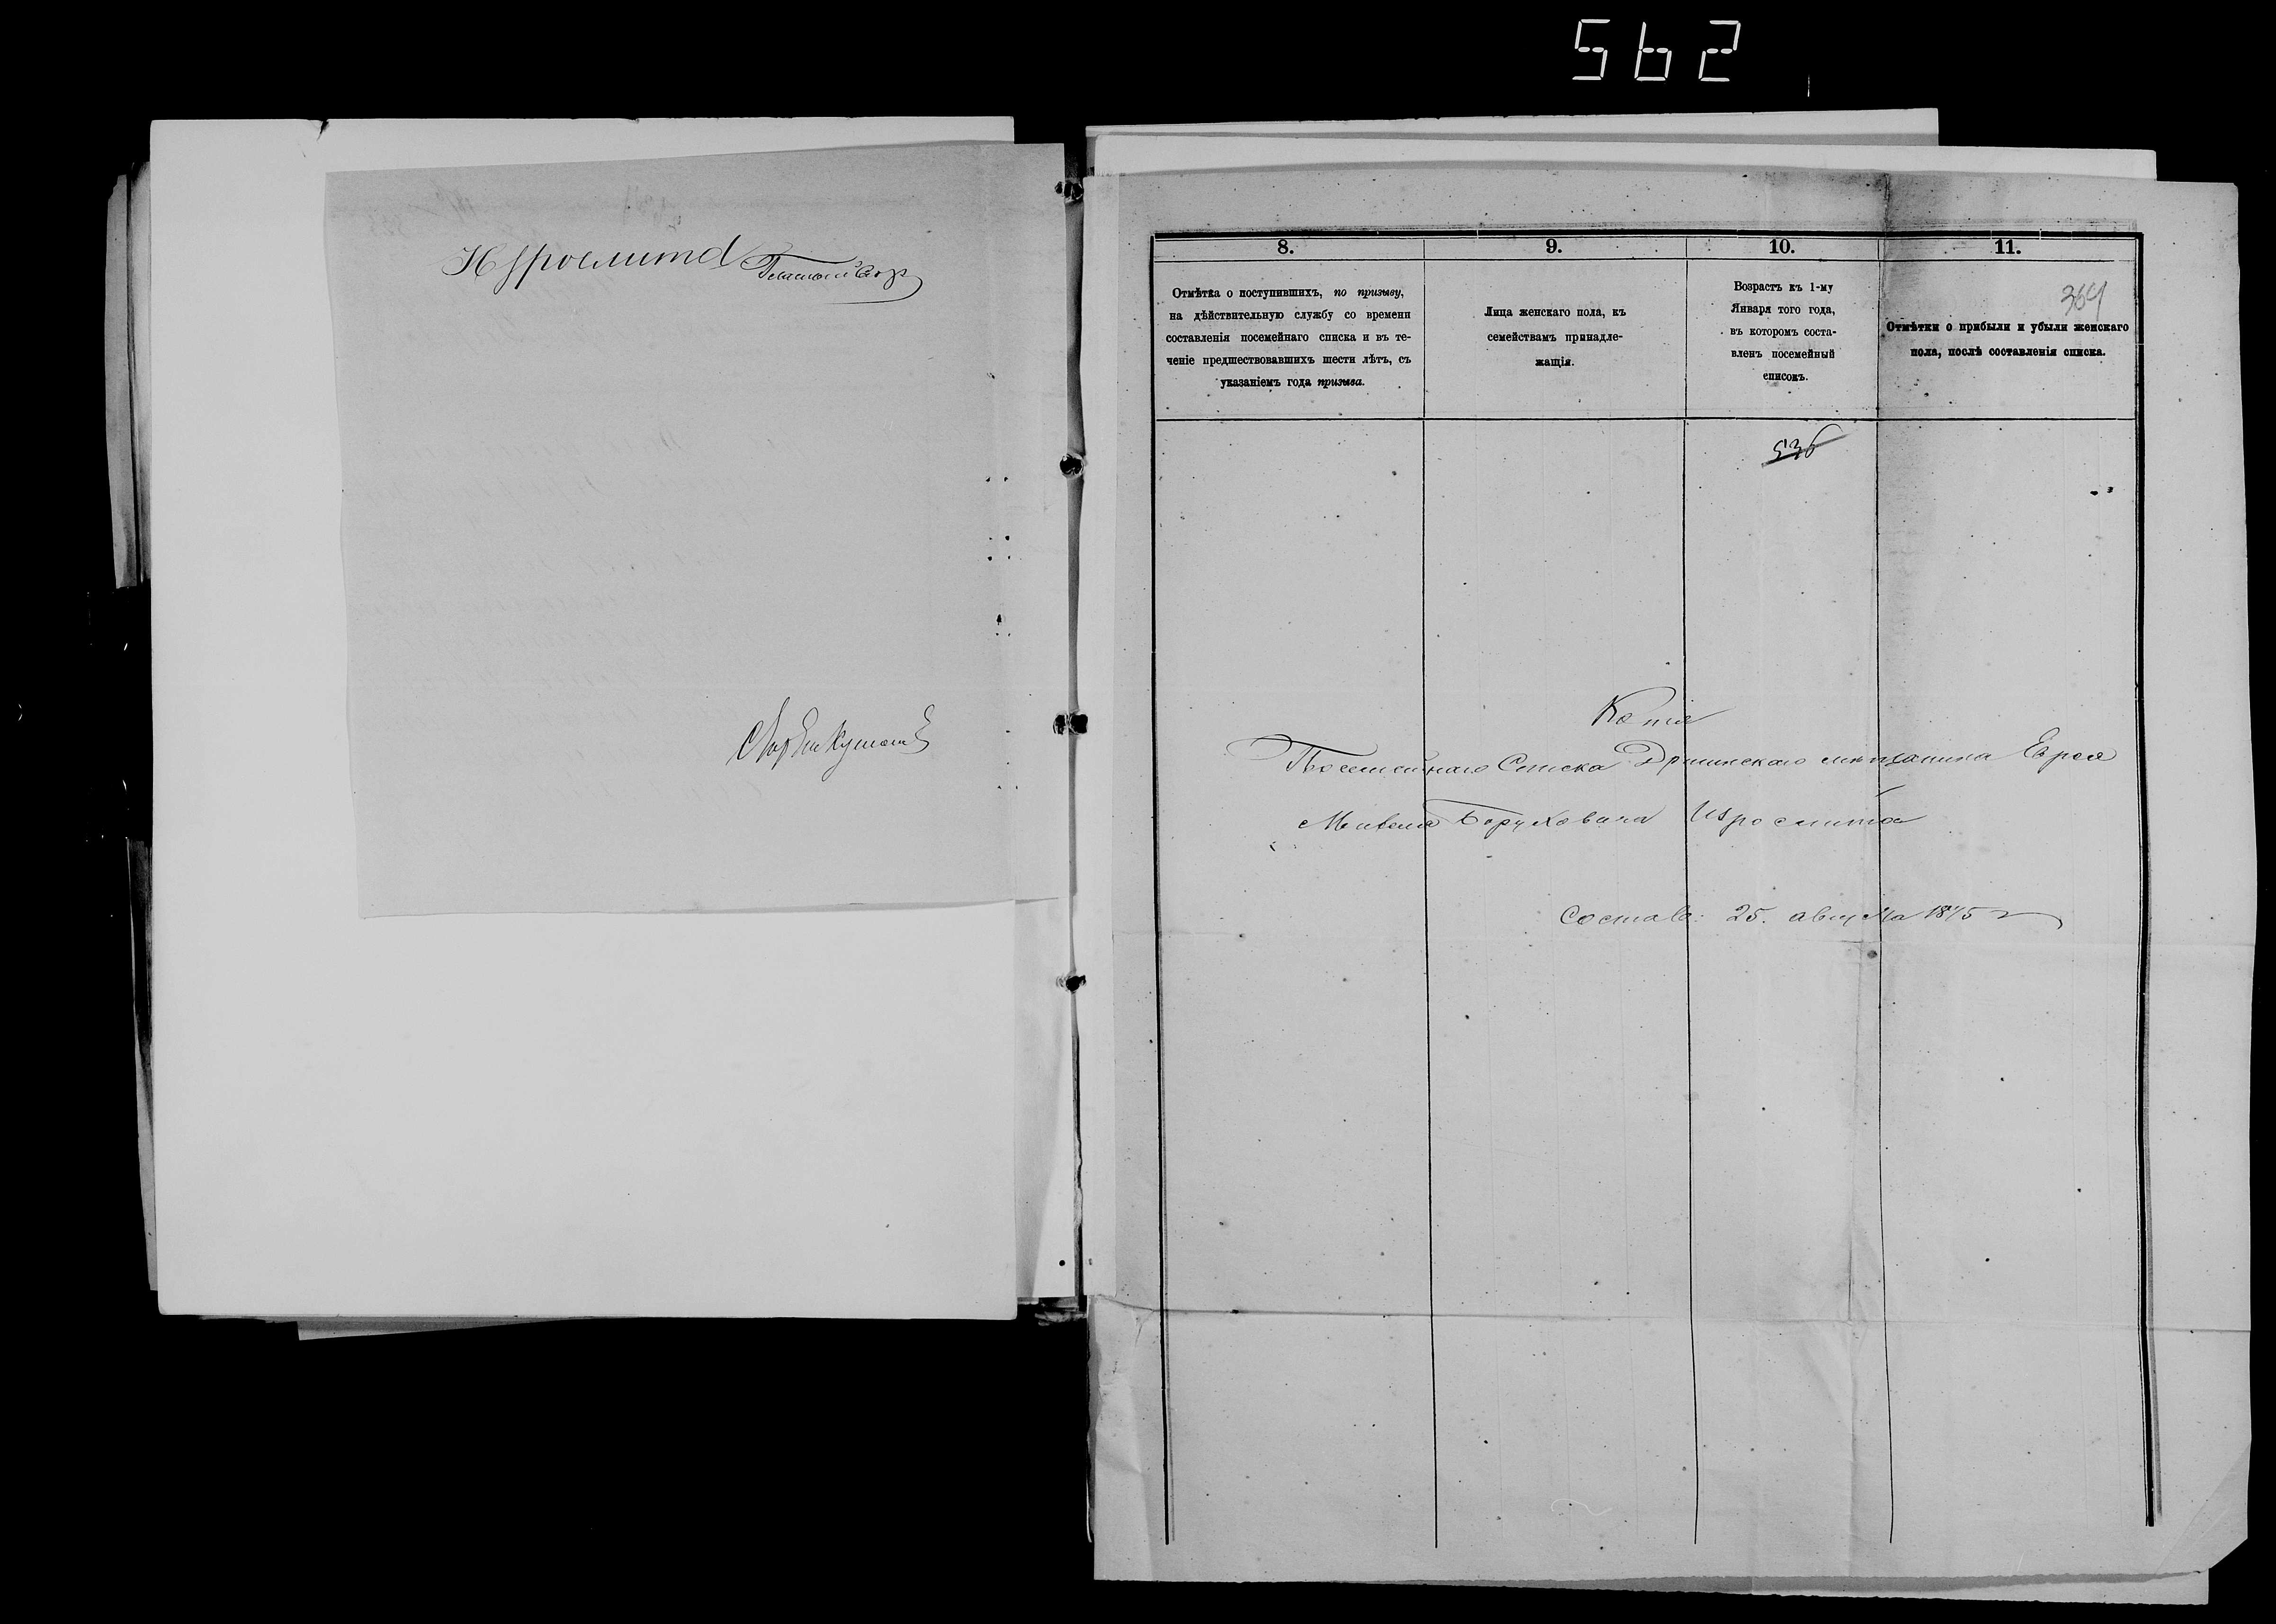 562
8.
9.
10.
11.
364
Отмѣтка о поступившихъ, по призыву,
на дѣйствительную службу со времени
составленія посемейнаго списка и въ те-
ченіе предшествовавшихъ шести лѣтъ, съ
указаніемъ года призыва.
Лица женскаго пола, къ
семействамъ принадле-
жащія.
Возрастъ къ 1-му
Января того года,
въ которомъ соста-
вленъ посемейный
списокъ.
Отмѣтки о прибыли и убыли женскаго
пола, послѣ составленія списка.
536
Копія
Посемейнаго Списка мѣщанина Еврея
Боруховича
Состав: 25. августа 1875 г